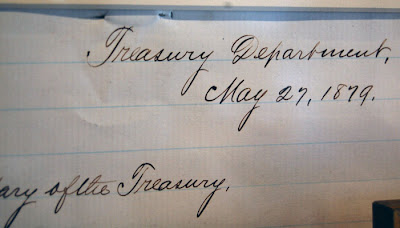 Treasury Department,
May 27, 1879.
ary of the Treasury,